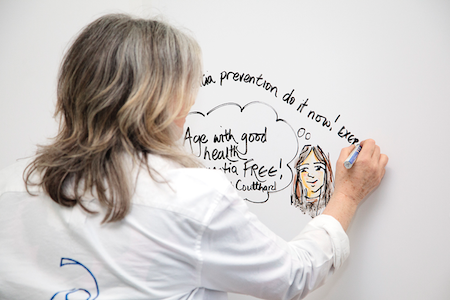 prevention do it now!
Age with good
health
FREE!
Coutthard